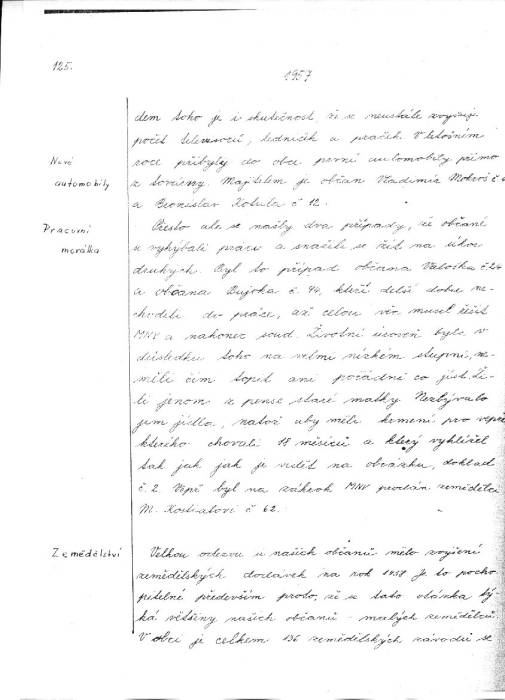 125.
1957
dem toho je i skutečnost, že se neustále zvyšuje
počet televisorů, ledniček a praček. V letošním
Nové automobily
roce přibyly do obce první automobily přímo
z továrny. Majitelem je občan Vladimír Mokroš č
a Bronislav Kotula č 12.
Pracovní morálka
Přesto ale se našly dva případy, že občané
se vyhýbali práci a snažili se žít na úkor
druhých. Byl to případ občana Valoška č.24
a občana Bujoka č. 94, kteří delší dobu ne-
chodili do práce, až celou věc musel řešit
MNV a nakonec soud. Životní úroveň byla v
důsledku toho na velmi nízkém stupni, ne-
měli čím topit ani pořádně co jíst. Ži-
li jenom z pense staré matky. Nezbývalo
jim jídlo, natož aby měli krmení pro vepře
kterého chovali 18 měsíců a který vyhlížel
tak jak jak je vidět na obrázku, doklad
č. 2. Vepř byl na zákrok MNV prodán zemědělci
M. Kostiatovi č 62.
Zemědělství
Velkou odezvu u našich občanů mělo zvýšení
zemědělských dodávek na rok 1957. Je to pocho-
pitelné především proto, že se tato otázka tý-
ká většiny našich občanů - malých zemědělců.
V obci je celkem 136 zemědělských závodů se